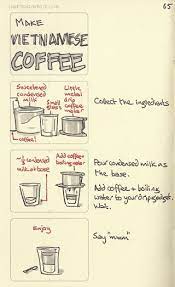 65
MAKE
VIETNAMESE
COFFEE
Sweetened
condensed
milk
Small
glass
Little
metal
drip
coffee
maker
coffee!
Collect the ingredients
milk at base
Add coffee +
boiling water
Pour condensed milk as
the base.
Add coffee + boiling
water to your drip
Wait.
Enjoy
Say "mmm"